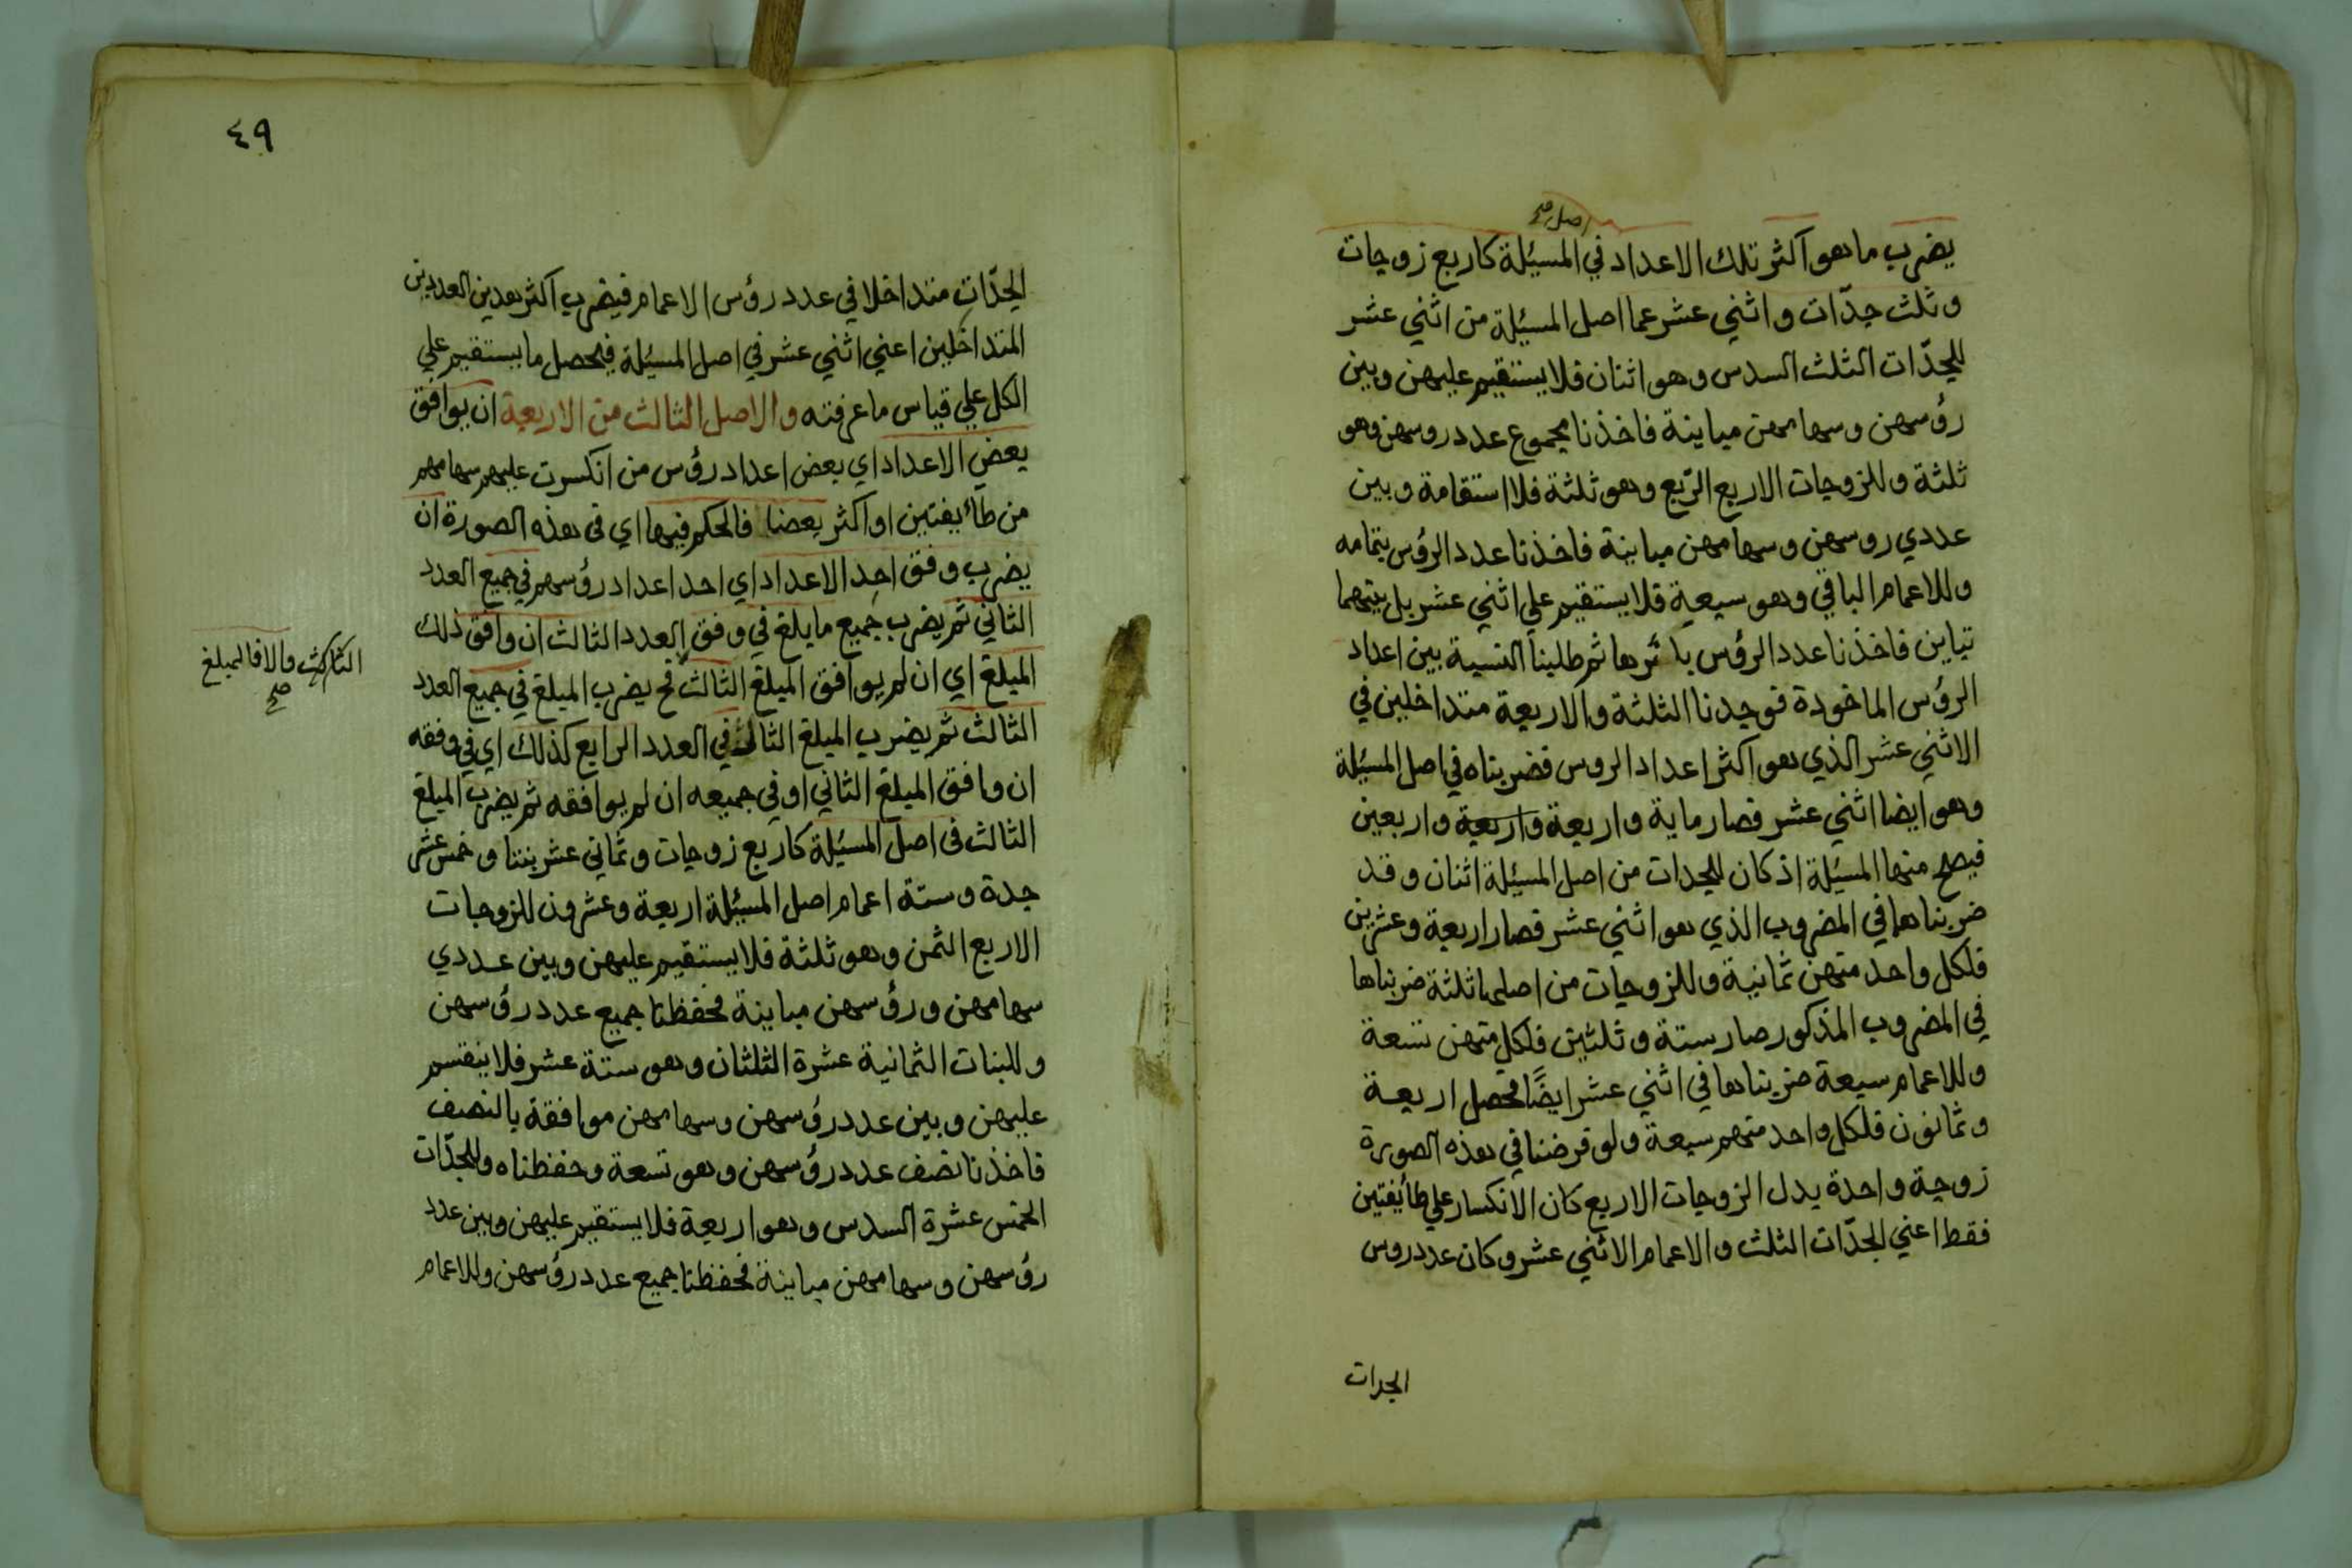 اصل صح
يضرب ما هو اكثر تلك الاعداد في المسئلة كاربع زوجات
وثلث جدّات واثني عشر عما اصل المسئلة من اثني عشر
للجدّات الثلث السدس وهو اثنان فلا يستقيم عليهن وبين
رؤسهن وسهامهن مباينة فاخذنا مجموع عدد روسهن وهو
ثلثة وللزوجات الاربع الرّبع وهو ثلثة فلا استقامة وبين
عددي روسهن وسهامهن مباينة فاخذنا عدد الرؤس بتمامه
وللاعمام الباقي وهو سبعة فلا يستقيم علي اثني عشر بل بينهما
تباين فاخذنا عدد الرؤس باسرها ثم طلبنا النسبة بين اعداد
الرؤس الماخوذة فوجدنا الثلثة والاربعة متداخلين في
الاثني عشر الذي هو اكثر اعداد الروس فضربناه في اصل المسئلة
وهو ايضا اثني عشر فصار ماية واربعة واربعة واربعين
فيصح منها المسئلة اذ كان للجدات من اصل المسئلة اثنان وقد
ضربناهما في المضروب الذي هو اثني عشر فصار اربعة وعشرين
فلكل واحد منهن ثمانية وللزوجات من اصلها ثلثة ضربناها
في المضروب المذكور صار ستة وثلثين فلكل منهن تسعة
وللاعمام سبعة ضربناها في اثني عشر ايضًا فحصل اربعة
وثمانون فلكل واحد منهم سبعة ولو فرضنا في هذه الصورة
زوجة واحدة بدل الزوجات الاربع كان الانكسار علي طائفتين
فقط اعني الجدّات الثلث والاعمام الاثني عشر وكان عدد روس
الجدات
٤٩
الجدّات متداخلا في عدد رؤس الاعمام فيضرب اكثر هذين العددين
المتداخلين اعني اثني عشر في اصل المسئلة فيحصل ما يستقيم علي
الكل علي قياس ما عرفته والاصل الثالث من الاربعة ان يوافق
بعض الاعداد اي بعض اعداد رؤس من انكسرت عليهم سهامهم
من طائفتين او اكثر بعضا فالحكم فيها اي في هذه الصورة ان
يضرب وفق احد الاعداد اي احد اعداد رؤسهم في جميع العدد
الثاني ثم يضرب جميع ما يلغ في وفق العدد الثالث ان وافق ذلك
المبلغ اي ان لم يوافق المبلغ الثالث فح يضرب المبلغ في جميع العدد
الثالث ثم يضرب المبلغ الثالث في العدد الرابع كذلك اي في وفقه
ان وافق المبلغ الثاني او في جميعه ان لم يوافقه ثم يضرب المبلغ
الثالث في اصل المسئلة كاربع زوجات وثماني عشر بنتا وخمس عشر
جدة وستة اعمام اصل المسئلة اربعة وعشرون للزوجات
الاربع الثمن وهو ثلثة فلا يستقيم عليهن وبين عددي
سهامهن ورؤسهن مباينة فحفظنا جميع عدد رؤسهن
وللبنات الثمانية عشرة الثلثان وهو ستة عشر فلا ينقسم
عليهن وبين عدد رؤسهن وسهامهن موافقة بالنصف
فاخذنا نصف عدد رؤسهن وهو تسعة وحفظناه وللجدّات
الخمس عشرة السدس وهو اربعة فلا يستقيم عليهن وبين عدد
رؤسهن وسهامهن مباينة فحفظنا جميع عدد رؤسهن وللاعمام
الثالث والا فالمبلغ
صح